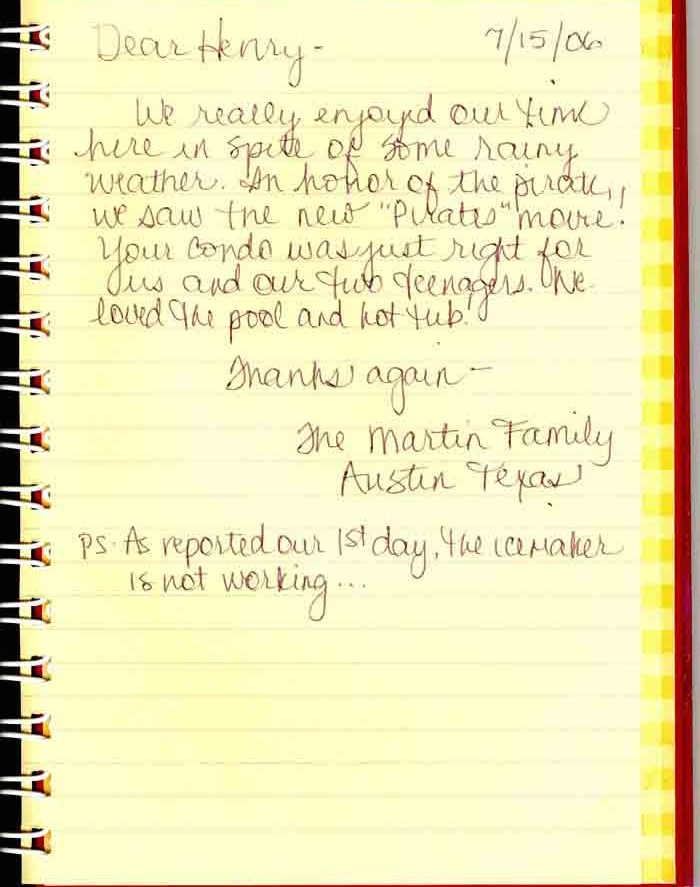 Dear Henry - 7/15/06
We really enjoyd our time
here in spite of some rainy
weather. In honor of the pirate,
we saw the new "Pirates" movie!
Your condo was just right for
us and our two teenagers. We
loved the pool and hot tub!
Thanks again -
The Martin Family
Austin Texas
PS. As reported our 1st day, the icemaker
is not working...